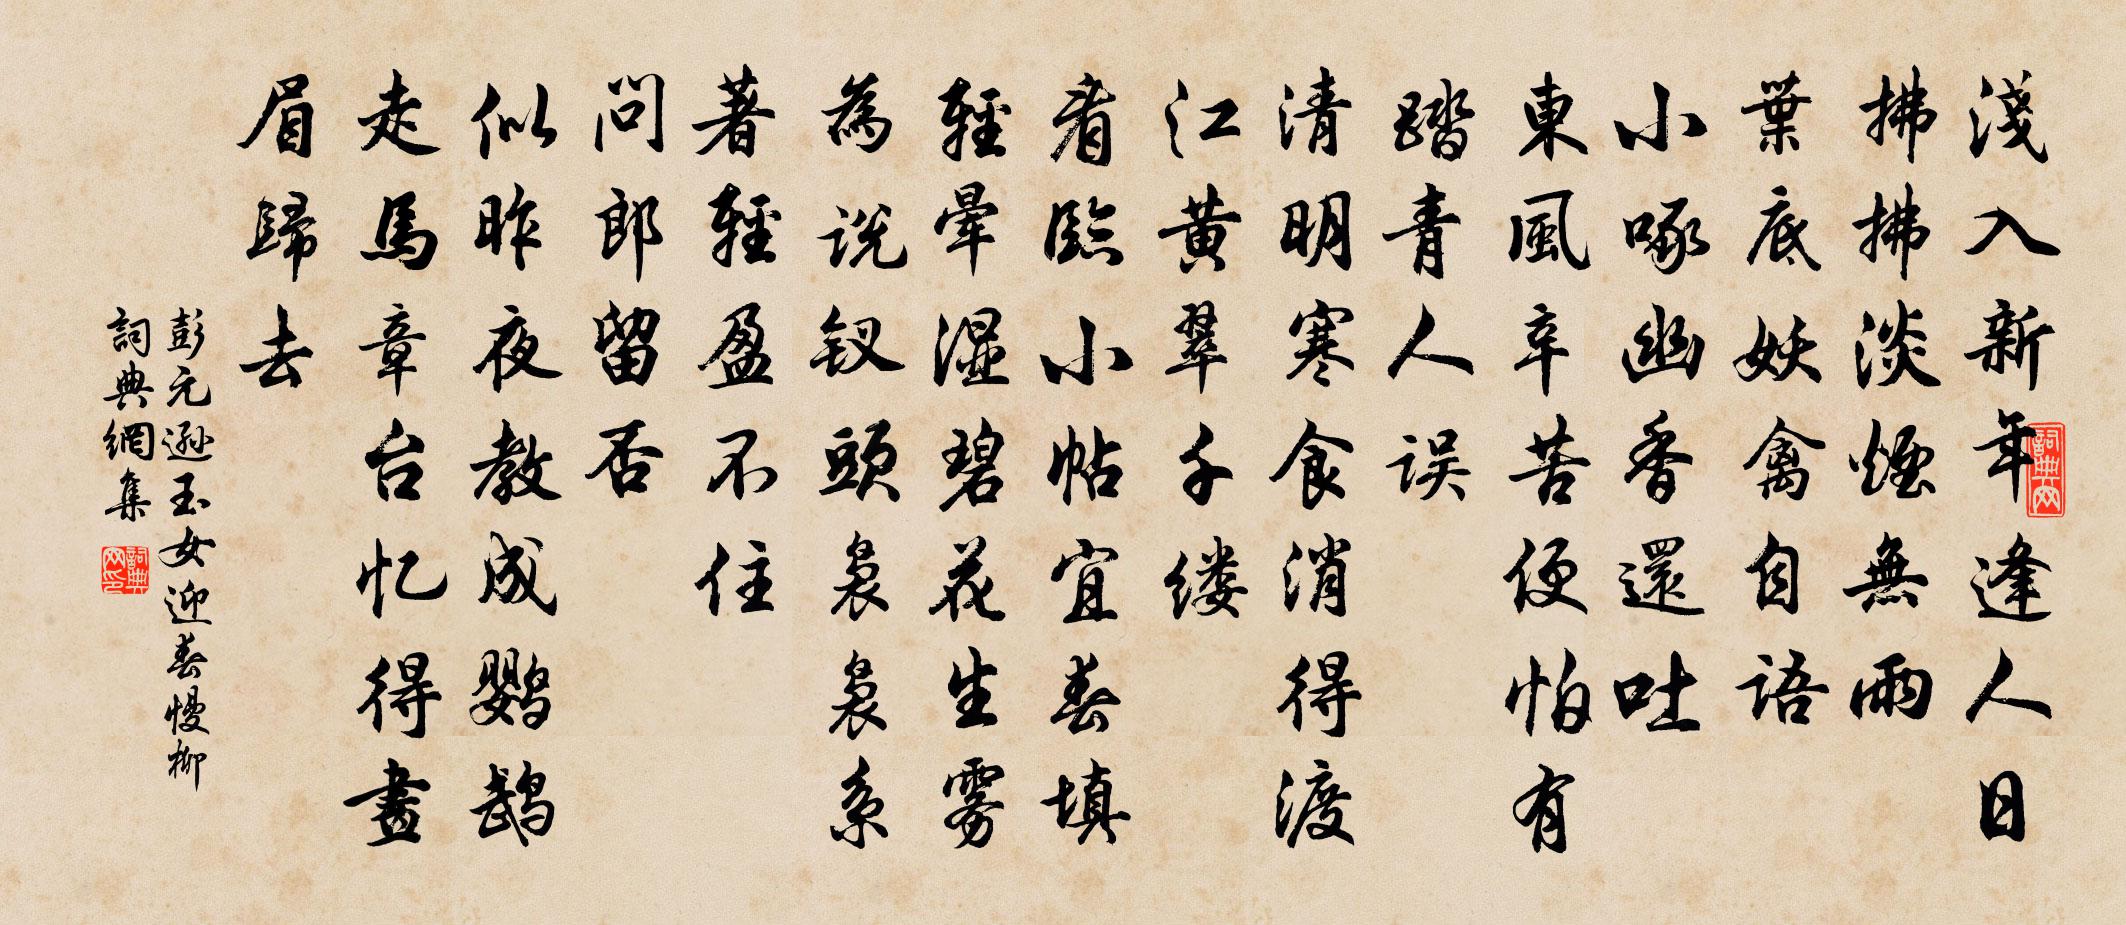 淺入新年逢人日
拂拂淡煙無雨
葉底妖禽自語
小啄幽香還吐
東風辛苦便怕有
踏青人误
清明寒食消得渡
江黄翠千缕
看臨小帖宜春填
輕暈湿碧花生雾
為说钗頭裊裊系
著輕盈不住
问郎留否
似昨夜教成鹦鹉
走馬章台忆得畫
眉歸去
彭元遜玉女迎春慢柳
詞典網集
詞典网
詞典网印